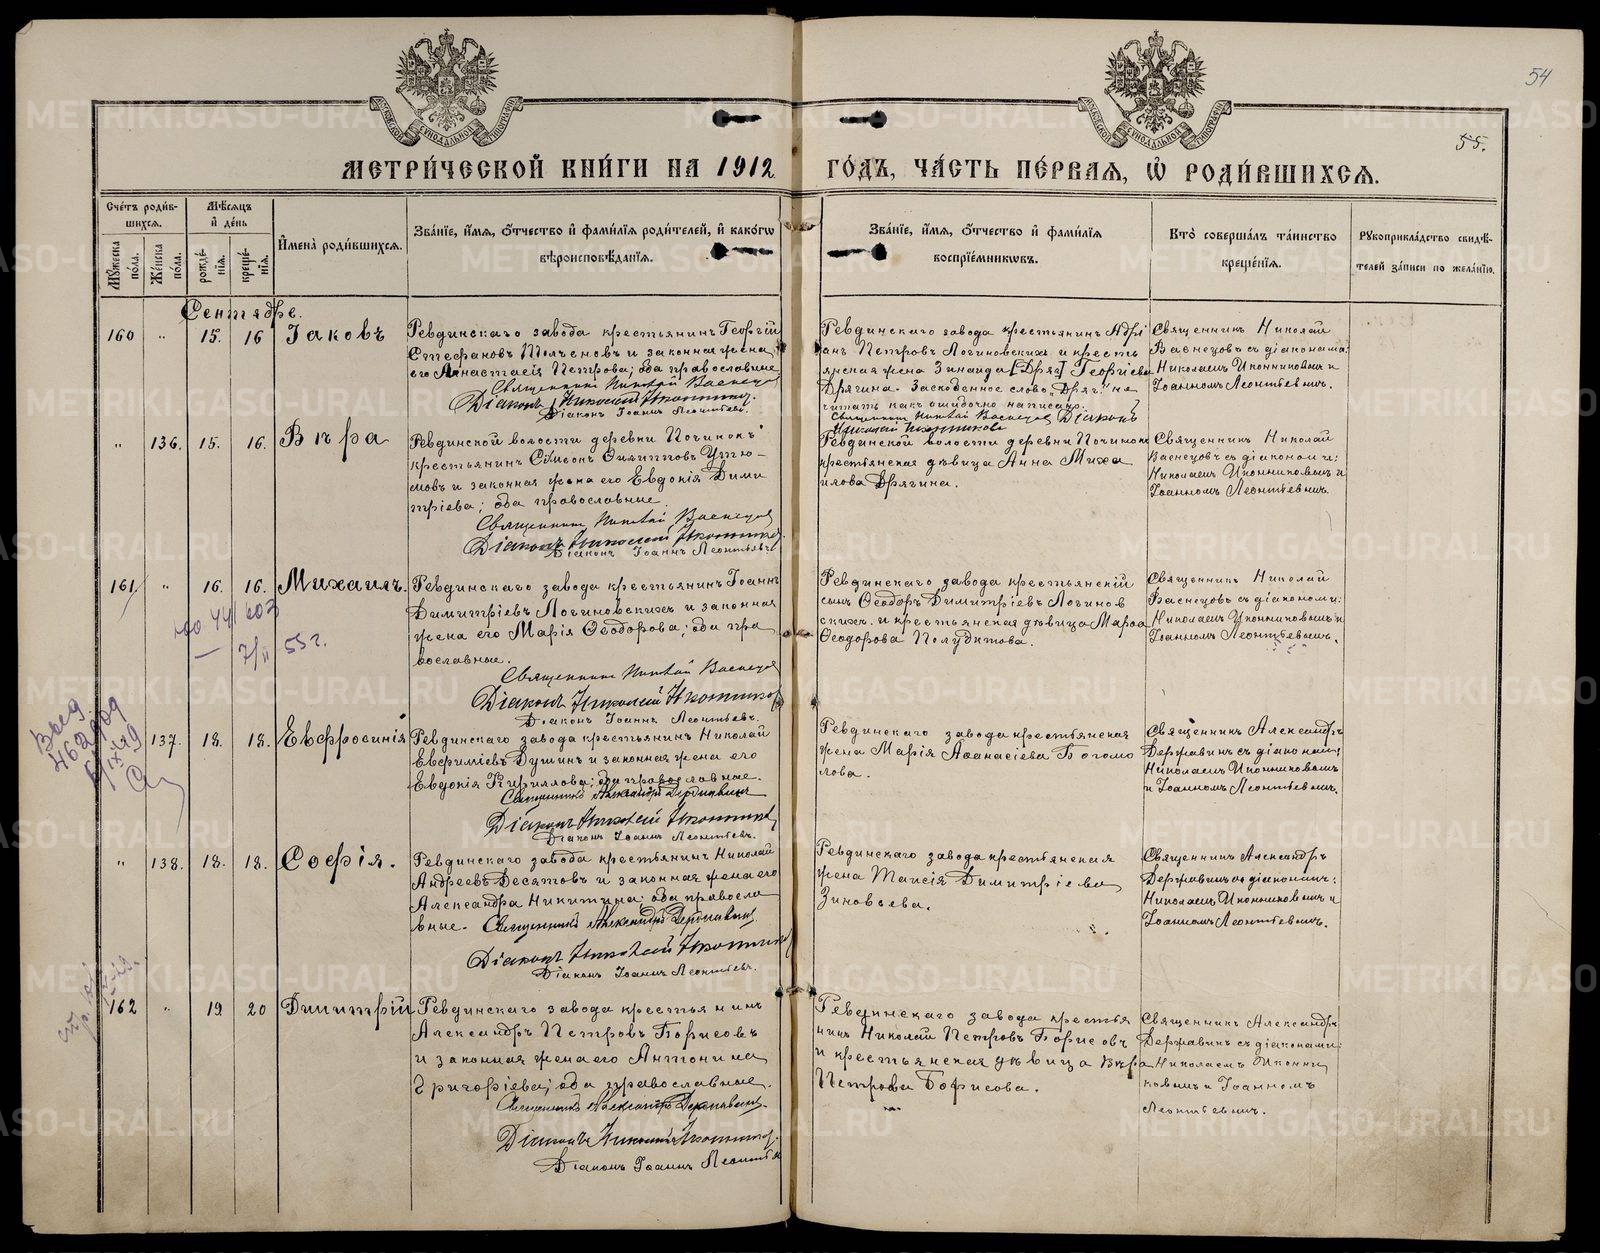 54
55.
МЕТРИ́ЧЕСКОЙ КНИ́ГИ НА 1912 ГО́ДЪ, ЧА́СТЬ ПЕ́РВАЯ, Ѡ҆ РОДИ́ВШИХСЯ.
Сче́тъ роди́в-
шихся.
Мꙋжеска по́ла.
Же́нска по́ла.
Мѣ́сяцъ
и҆ де́нь
рожде́-
нїя.
креще́-
нїя.
И҆мена̀ роди́вшихся.
Зва́нїе, и҆́мя, ѻ҆́тчество и҆ фами́лїѧ роди́телей, и҆ како́гѡ
вѣроисповѣ́данїѧ.
Зва́нїе, и҆́мя, ѻ҆́тчество и҆ фами́лїѧ
воспрїе́мникѡвъ.
Кто̀ соверша́лъ та́инство
креще́нїя.
Рꙋкоприкла́дство свидѣ́-
телей за́писи по жела́нїю.
Сентябре.
160 " 15. 16 Іаковъ
Ревдинскаго завода крестьянинъ Георгій
Стефановъ Толченовъ и законная жена
его Анастасія Петрова; оба православные
Священникъ Николай Васнецов
Діаконъ Николай Иконников.
Діаконъ Іоаннъ Леонтьевъ.
Ревдинскаго завода крестьянинъ Адрі
анъ Петровъ Логиновскихъ и кресть
янская жена Зинаида [Дряг] Георгіева
Дрягина. Заскобенное слово "Дряг" не
читать какъ ошибочно написано.
Священникъ Николай Васнецов Діаконъ
Николай Иконников
Священникъ Николай
Васнецовъ съ діаконами:
Николаемъ Иконниковымъ и
Іоанномъ Леонтьевымъ.
" 136. 15. 16. Вѣра
Ревдинской волости деревни Починокъ
крестьянинъ Сѵмеонъ Филипповъ Утю-
мовъ и законная жена его Евдокія Дими
тріева; оба православные
Священникъ Николай Васнецов
Діаконъ Николай Иконников
Діаконъ Іоаннъ Леонтьевъ
Ревдинской волости деревни Починокъ
крестьянская дѣвица Анна Миха
илова Дрягина.
Священникъ Николай
Васнецовъ съ діаконами:
Николаемъ Иконниковымъ и
Іоанномъ Леонтьевымъ.
161 " 16. 16. Михаилъ.
7/II 55 г.
Ревдинскаго завода крестьянинъ Іоаннъ
Димитріевъ Логиновскихъ и законная
жена его Марія Ѳеодорова; оба пра
вославные.
Священникъ Николай Васнецов
Діаконъ Николай Иконников
Діаконъ Іоаннъ Леонтьевъ.
Ревдинскаго завода крестьянскій
сынъ Ѳеодоръ Димитріевъ Логинов
скихъ. и крестьянская дѣвица Марѳа
Ѳеодорова Полубитова.
Священникъ Николай
Васнецовъ съ діаконами:
Николаемъ Иконниковымъ и
Іоанномъ Леонтьевымъ.
137. 18. 18. Евфросинія
Ревдинскаго завода крестьянинъ Николай
Евѳиміевъ Душинъ и законная жена его
Евдокія Кириллова; оба православные.
Священникъ Александръ Державинъ
Діаконъ Николай Иконников
Діаконъ Іоаннъ Леонтьевъ.
Ревдинскаго завода крестьянская
жена Марія Аѳанасіева Богомо
лова.
Священникъ Александръ
Державинъ съ діаконами:
Николаемъ Иконниковымъ
и Іоанномъ Леонтьевымъ.
" 138. 18. 18. Софія.
Ревдинскаго завода крестьянинъ Николай
Андреевъ Десятовъ и законная жена его
Александра Никитина; оба правосла
вные. Священникъ Александръ Державинъ
Діаконъ Николай Иконников
Діаконъ Іоаннъ Леонтьевъ.
Ревдинскаго завода крестьянская
жена Таисія Димитріева
Зиновьева.
Священникъ Александръ
Державинъ съ діаконами:
Николаемъ Иконниковымъ и
Іоанномъ Леонтьевымъ.
162 " 19 20 Димитрій
Ревдинскаго завода крестьянинъ
Александръ Петровъ Борисовъ
и законная жена его Антонина
Григоріева; оба православные.
Священникъ Александръ Державинъ.
Діаконъ Николай Иконников.
Діаконъ Іоаннъ Леонтьев
Ревдинскаго завода крестья
нинъ Николай Петровъ Борисовъ
и крестьянская дѣвица Вѣра
Петрова Борисова.
Священникъ Александръ
Державинъ съ діаконами:
Николаемъ Иконни
ковымъ и Іоанномъ
Леонтьевымъ.
METRIKI.GASO-URAL.RU